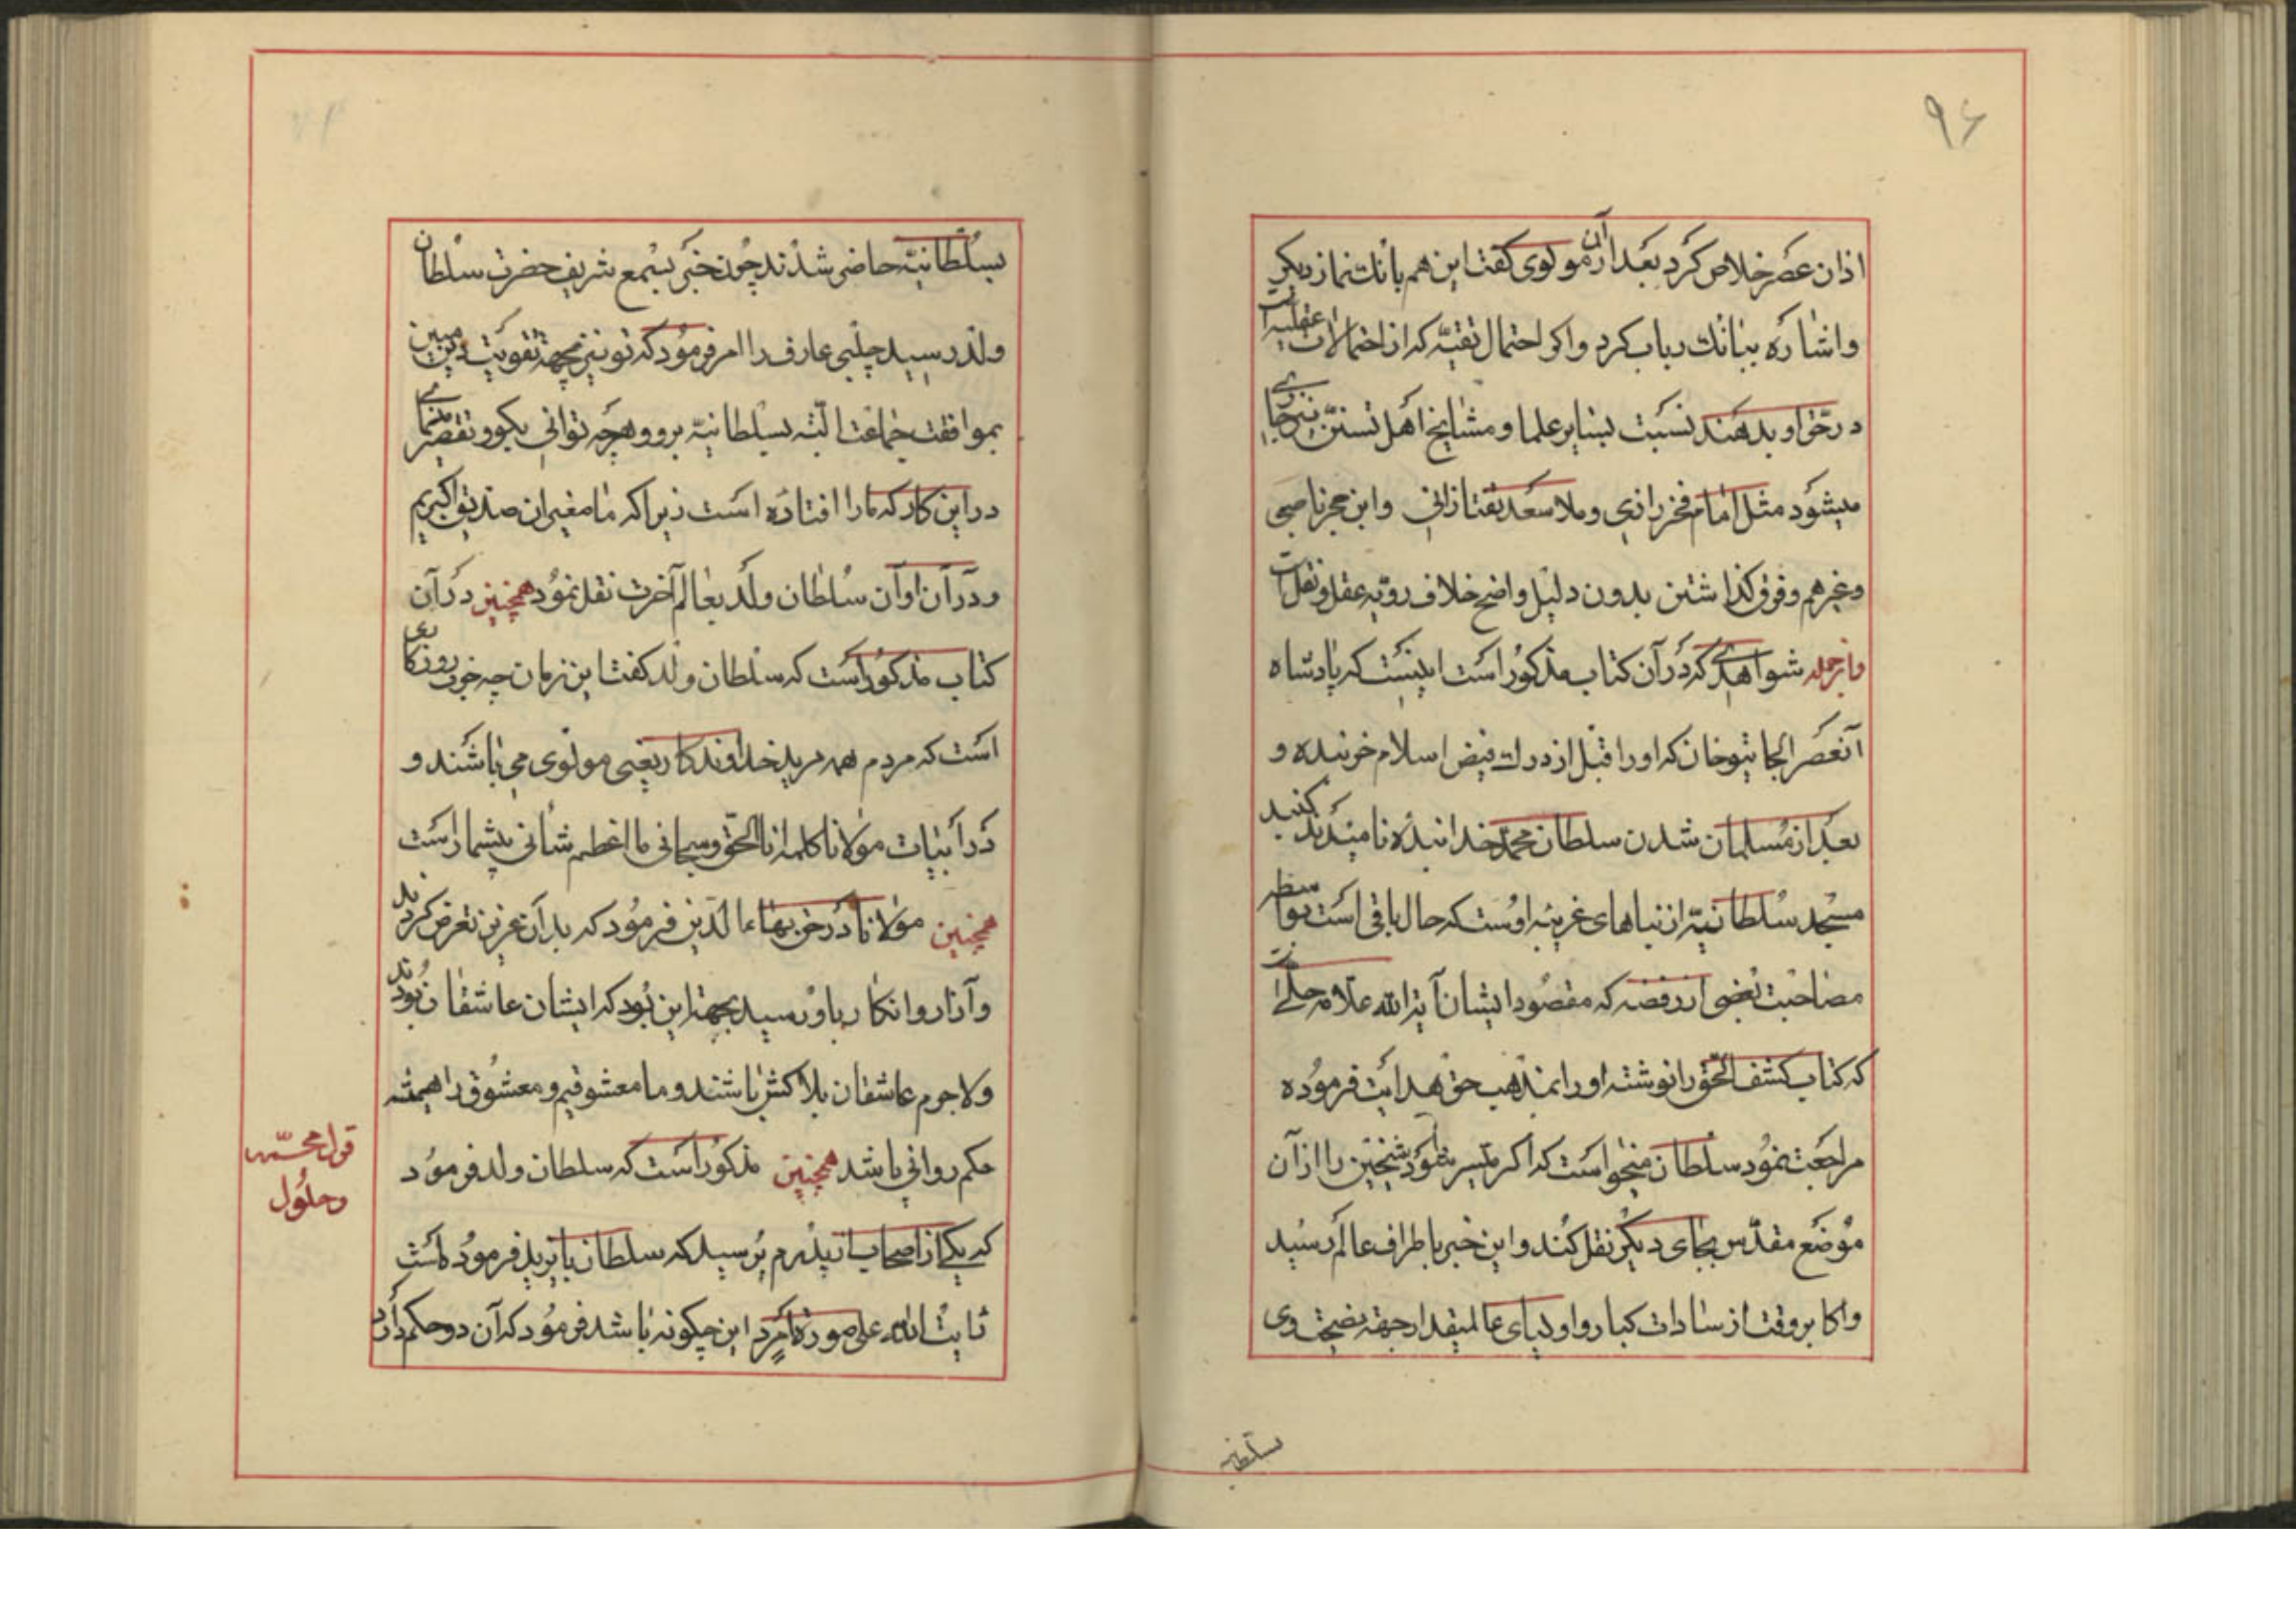 ۹۶
اذان عصر خلاص کرد بعد از آن مولوی گفت این هم بانک نماز دیکر
واشاره ببانك رباب کرد واکر احتمال تقیّه که از احتمالات عقلیه است
در حّق او بدهند نسبت بسایر علما ومشایخ اهل تسنّن نیز جاری
میشود مثل امام فخر رازی وملا سعد تفتازانی وابن حجر ناصبی
وغیرهم وفرق کذاشتن بدون دلیل واضح خلاف رویّه عقل ونقل است
وازجمله شواهدی که در آن کتاب مذکور است اینست که پادشاه
آنعصر الجایتوخان که اورا قبل از درك فیض اسلام خربنده و
بعد از مسلمان شدن سلطان محمّد خدابنده نامیدند کنبد
مسجد سلطانیّه از بناهای غریبه اوست که حال باقی است بواسطه
مصاحبت بعضی از رفضه که مقصود ایشان آیة الله علّامه حلّی است
که کتاب کشف الحّق را نوشته اورا بمذهب حق هدایت فرموده
مراجعت نمود سلطان میخواست که اکر میّسر شود شیخین را از آن
موضع مقدّس بجای دیکر نقل کنند واین خبر باطراف عالم رسید
واکابر وقت از سادات کبار واولیای عالیمقدار جهة نصیحت وی
سلطانیه
بسلطانیّه حاضر شدند چون خبر بسمع شریف حضرت سلطان
ولد رسید چلبی عارف را امر فرمود که تو نیز بجهة تقویت دین مبین
بموافقت جماعت البّته بسلطانیّه برو وهرچه توانی بکو وتقصیر منمای
در این کار که مارا افتاده است زیرا که ما مغیران صدیق اکبریم
ودر آن اوان سلطان ولد بعالم آخرت نقل نمود همچنین در آن
کتاب مذکور است که سلطان ولد کفت این زمان چه خوب روزکاری
است که مردم همه مرید خداوندکار یعنی مولوی می باشند و
در ابیات مولانا کلمه انا الحّق وسبحانی ما اعظم شانی بیشمار است
همچنین مولانا در حق بهاء الدین فرمود که بدان عزیز تعرض کردند
وآزار وانکار باو رسید بجهة این بود که ایشان عاشقان بودند
ولاجرم عاشقان بلاکش باشند وما معشوقیم ومعشوق را همیشه
حکم روانی باشد همچنین مذکور است که سلطان ولد فرمود
که یکی از اصحاب از پدرم پرسید که سلطان بایزید فرموده است
رایت الله علی صورة امرد این چکونه باشد فرمود که آن دو حکم دارد
وحلول